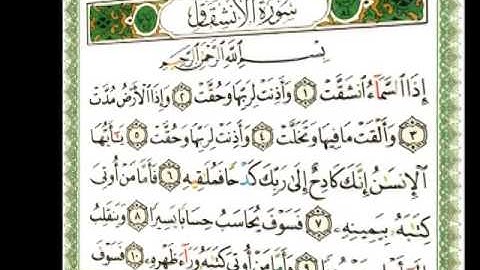 سُورَةُ الانشِقَاقِ
بِسْمِ ٱللَّهِ ٱلرَّحْمَٰنِ ٱلرَّحِيمِ
إِذَا ٱلسَّمَآءُ ٱنشَقَّتْ ١ وَأَذِنَتْ لِرَبِّهَا وَحُقَّتْ ٢ وَإِذَا ٱلْأَرْضُ مُدَّتْ
٣ وَأَلْقَتْ مَا فِيهَا وَتَخَلَّتْ ٤ وَأَذِنَتْ لِرَبِّهَا وَحُقَّتْ ٥ يَٰٓأَيُّهَا
ٱلْإِنسَٰنُ إِنَّكَ كَادِحٌ إِلَىٰ رَبِّكَ كَدْحًا فَمُلَٰقِيهِ ٦ فَأَمَّا مَنْ أُوتِىَ
كِتَٰبَهُۥ بِيَمِينِهِۦ ٧ فَسَوْفَ يُحَاسَبُ حِسَابًا يَسِيرًا ٨ وَيَنقَلِبُ
٩ وَأَمَّا مَنْ أُوتِىَ كِتَٰبَهُۥ وَرَآءَ ظَهْرِهِۦ ١٠ فَسَوْفَ